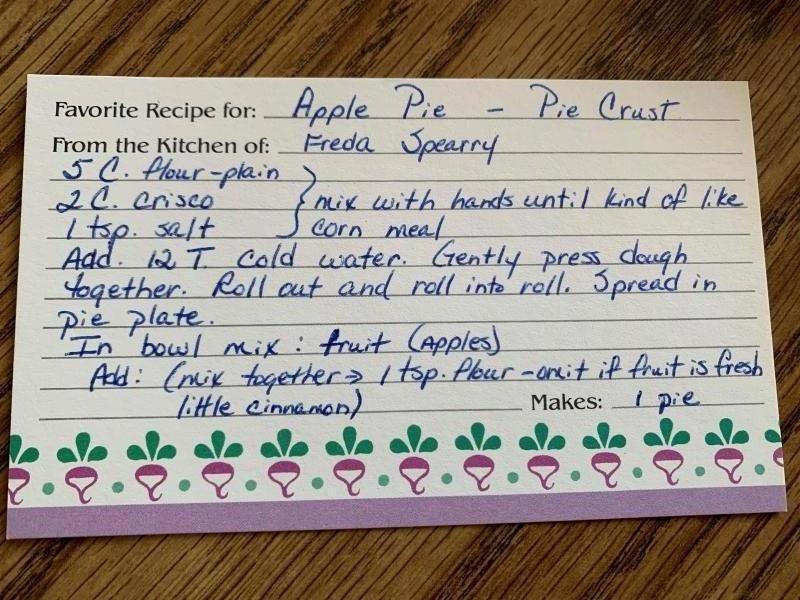 Favorite Recipe for: Apple Pie - Pie Crust
From the Kitchen of: Freda Spearry
5 C. flour-plain
2 C. crisco } mix with hands until kind of like
1 tsp. salt corn meal
Add. 12 T. cold water. Gently press dough
together. Roll out and roll into roll. Spread in
pie plate.
In bowl mix: fruit (Apples)
Add: (mix together → 1 tsp. flour - omit if fruit is fresh
little cinnamon) Makes: 1 pie